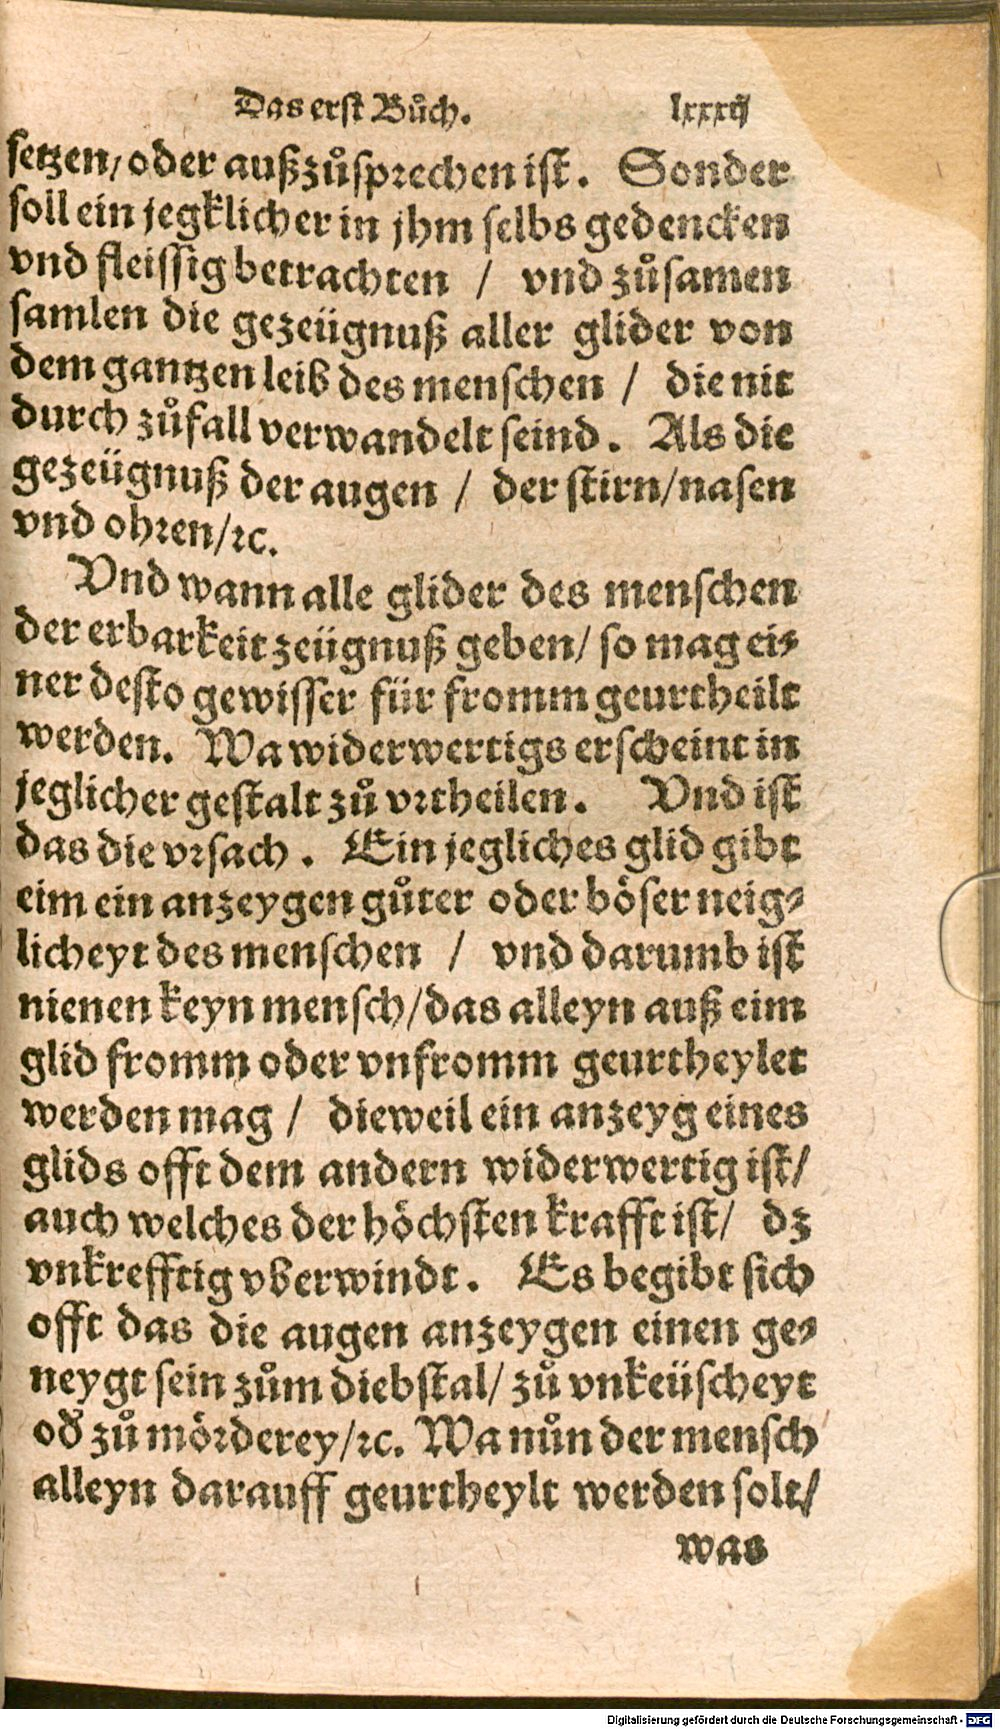 Das erst Bůch. lxxxij
setzen/ oder außzůsprechen ist. Sonder
soll ein jegklicher in jhm selbs gedencken
vnd fleissig betrachten / vnd zůsamen
samlen die gezeügnuß aller glider von
dem gantzen leib des menschen / die nit
durch zůfall verwandelt seind. Als die
gezeügnuß der augen / der stirn/ nasen
vnd ohren/ ꝛc.
Vnd wann alle glider des menschen
der erbarkeit zeügnuß geben/ so mag ei⸗
ner desto gewisser für fromm geurtheilt
werden. Wa widerwertigs erscheint in
jeglicher gestalt zů vrtheilen. Vnd ist
das die vrsach. Ein jegliches glid gibt
eim ein anzeygen gůter oder böser neig⸗
licheyt des menschen / vnd darumb ist
nienen keyn mensch/ das alleyn auß eim
glid fromm oder vnfromm geurtheylet
werden mag / dieweil ein anzeyg eines
glids offt dem andern widerwertig ist/
auch welches der höchsten krafft ist/ dz
vnkrefftig vberwindt. Es begibt sich
offt das die augen anzeygen einen ge⸗
neygt sein zům diebstal/ zů vnkeüscheyt
od̕ zů mörderey/ ꝛc. Wa nůn der mensch
alleyn darauff geurtheylt werden solt/
was
Digitalisierung gefördert durch die Deutsche Forschungsgemeinschaft - DFG